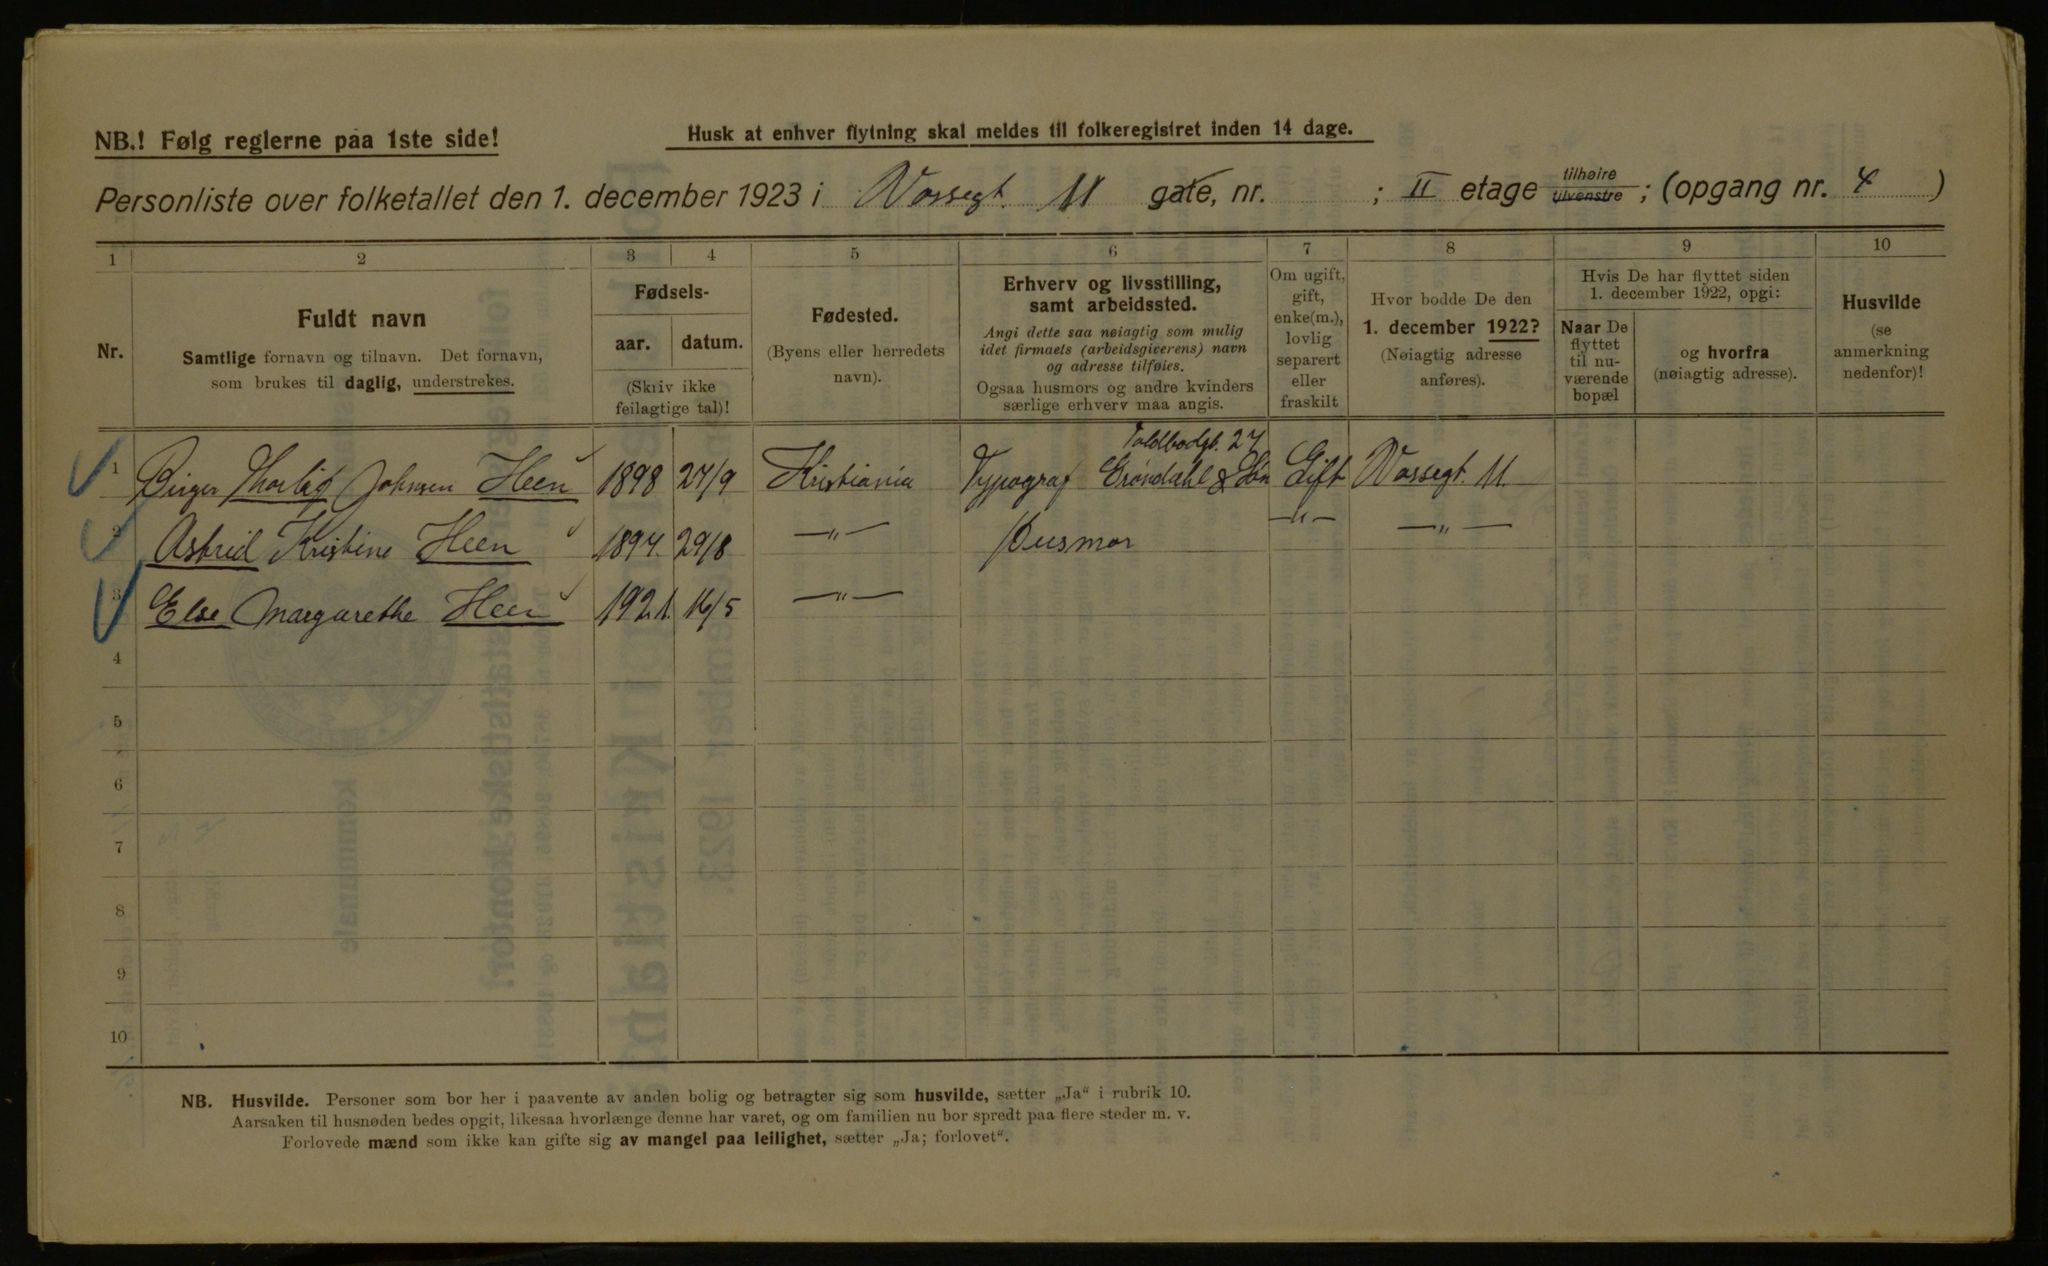 NB.! Følg reglerne paa 1ste side!
Husk at enhver flytning skal meldes til folkeregistret inden 14 dage.
Personliste over folketallet den 1. december 1923 i Vossegt. 11 gate, nr. ; II etage tilhøire tilvenstre ; (opgang nr. 4 )
1 2 3 4 5 6 7 8 9 10
Nr.
Fuldt navn
Samtlige fornavn og tilnavn. Det fornavn,
som brukes til daglig, understrekes.
Fødsels-
aar. datum.
(Skriv ikke
feilagtige tal)!
Fødested.
(Byens eller herredets
navn).
Erhverv og livsstilling,
samt arbeidssted.
Angi dette saa nøiagtig som mulig
idet firmaets (arbeidsgiverens) navn
og adresse tilføies.
Ogsaa husmors og andre kvinders
særlige erhverv maa angis.
Om ugift,
gift,
enke(m.),
lovlig
separert
eller
fraskilt
Hvor bodde De den
1. december 1922?
(Nøiagtig adresse
anføres).
Hvis De har flyttet siden
1. december 1922, opgi:
Naar De
flyttet
til nu-
værende
bopæl
og hvorfra
(nøiagtig adresse).
Husvilde
(se
anmerkning
nedenfor)!
Toldbodgt. 27
1 Birger Thorleif Johnsen Heen 1898 27/9 Kristiania Typograf Grøndahl & Søn Gift Vossegt. 11.
2 Astrid Kristine Heen 1894. 29/8 —„— Husmor —„— —„—
3 Else Margarethe Heen 1921. 16/5 —„—
4
5
6
7
8
9
10
NB. Husvilde. Personer som bor her i paavente av anden bolig og betragter sig som husvilde, sætter „Ja“ i rubrik 10.
Aarsaken til husnøden bedes opgit, likesaa hvorlænge denne har varet, og om familien nu bor spredt paa flere steder m. v.
Forlovede mænd som ikke kan gifte sig av mangel paa leilighet, sætter „Ja; forlovet“.